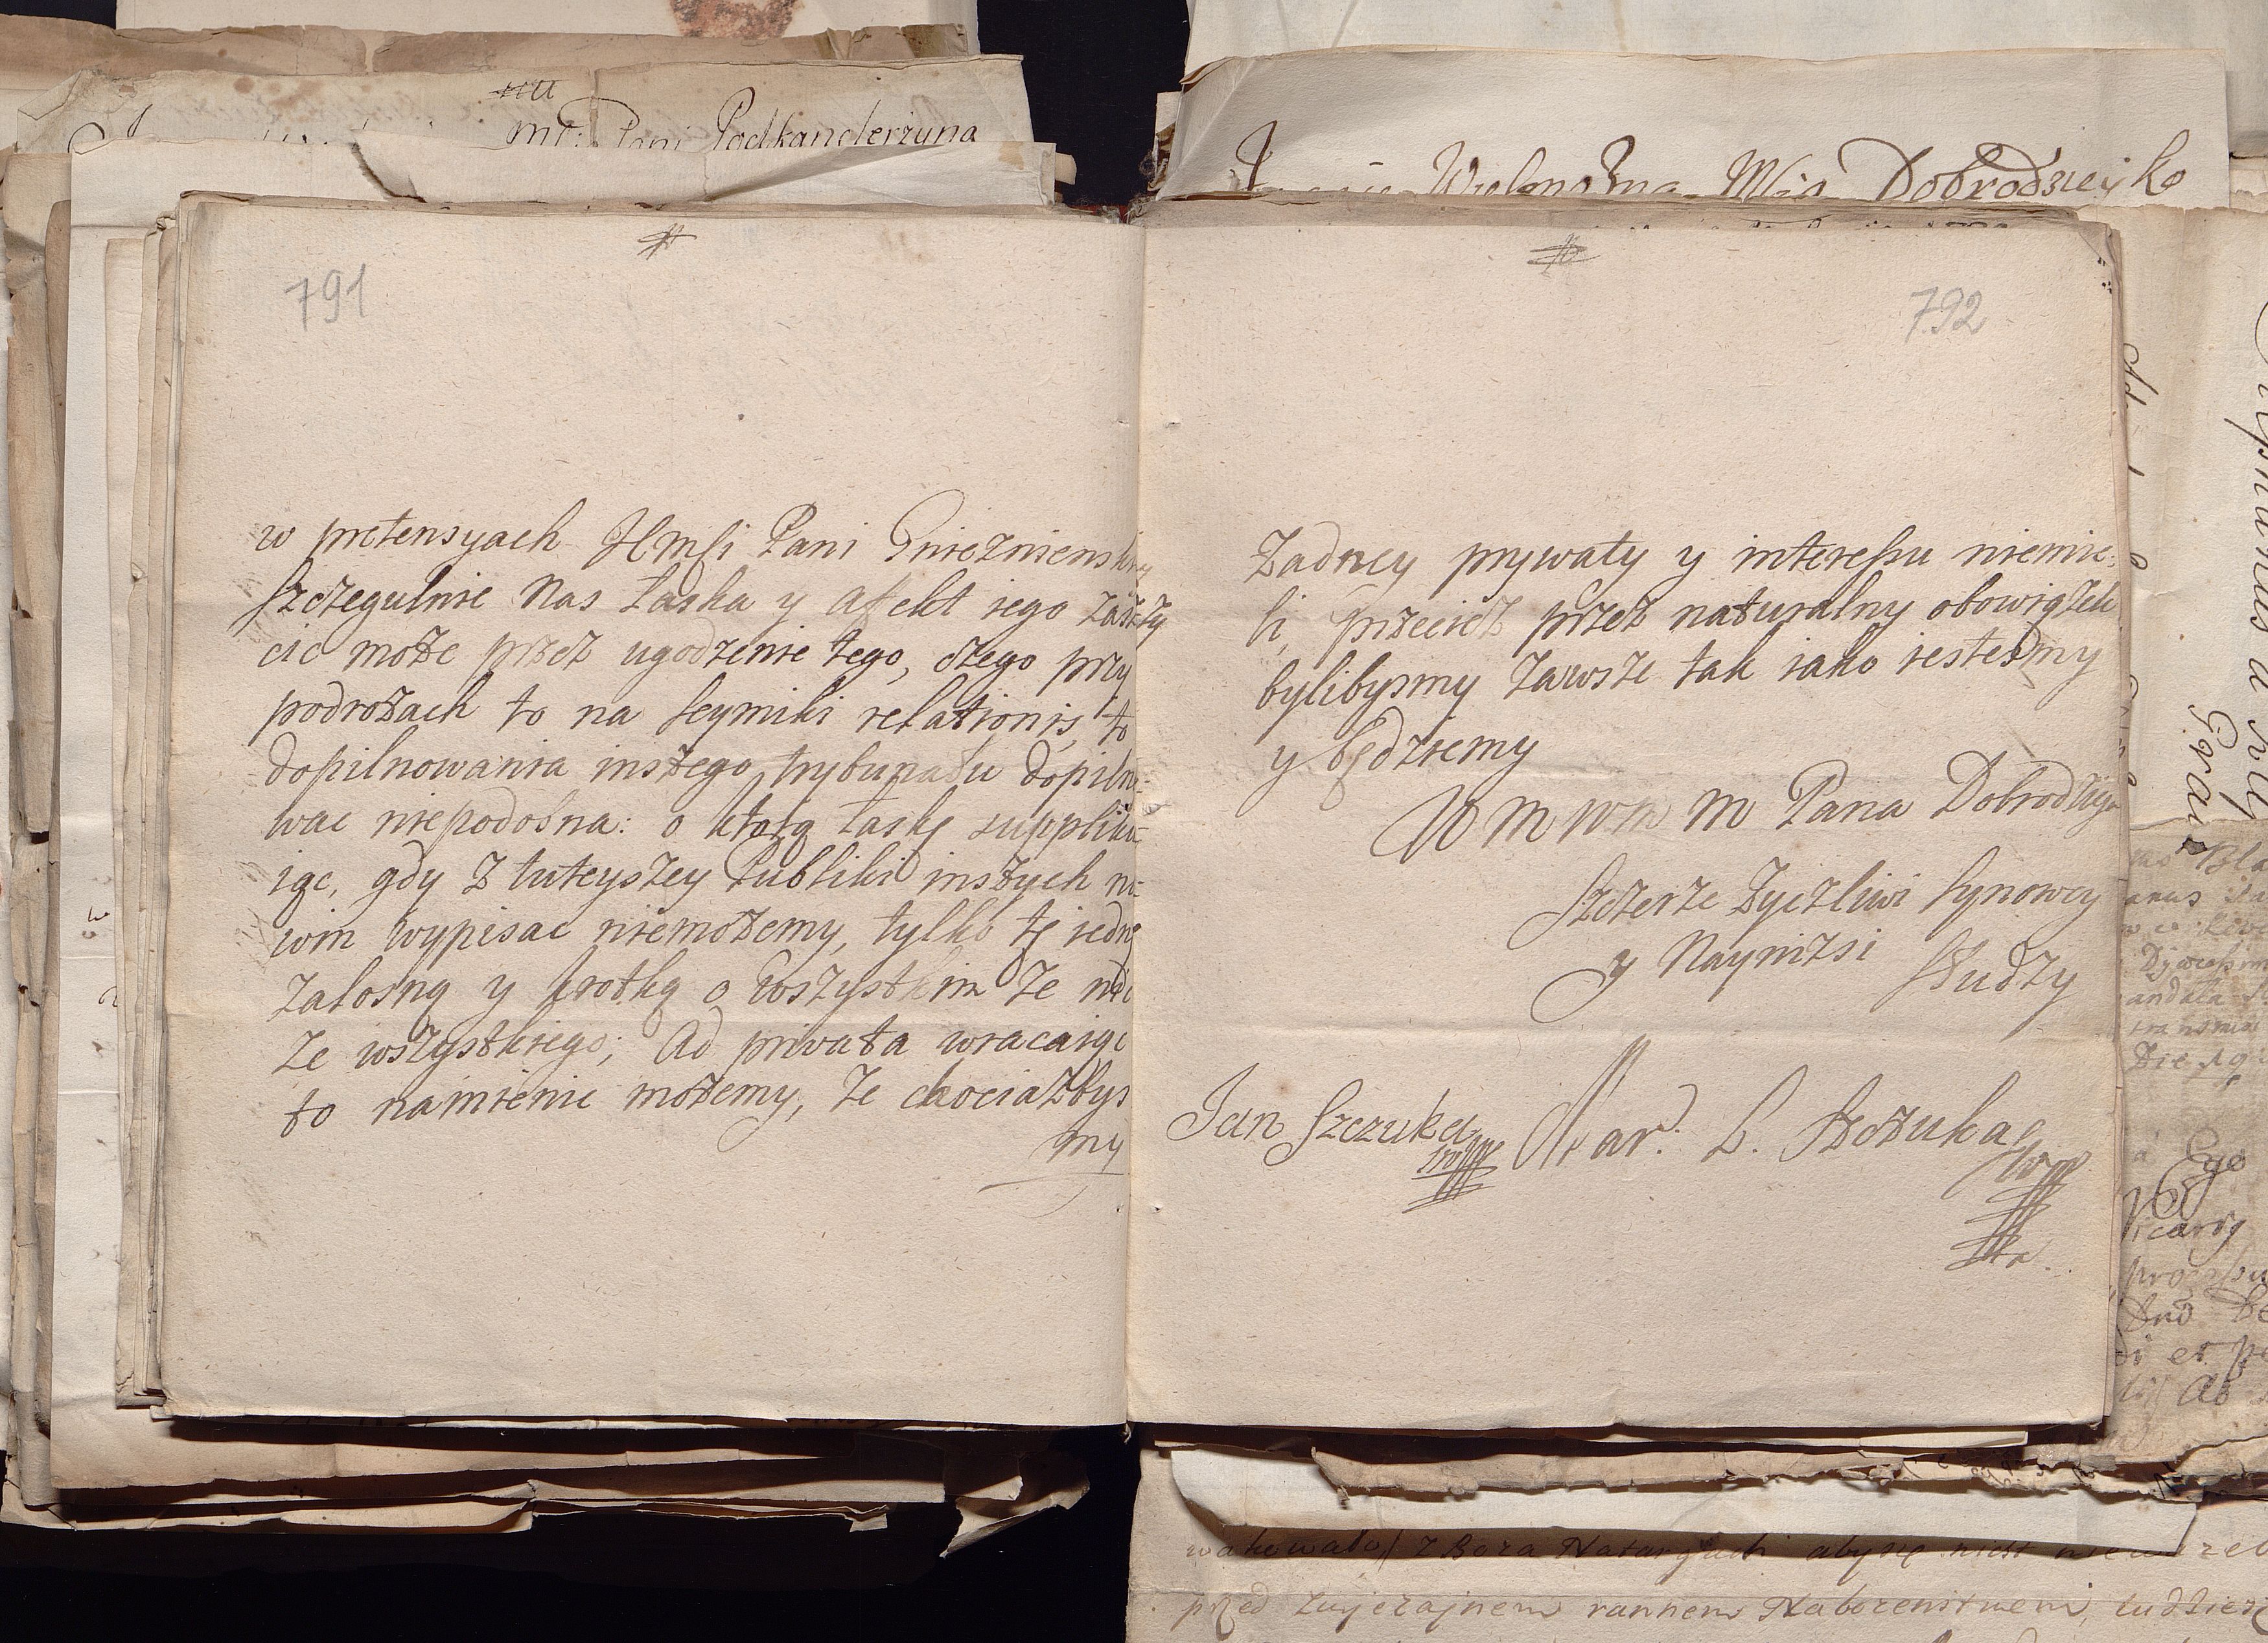 mć: Pani Podkanclerzyna
Wielmożna Mća Dobrodzieyko
791
w pretensyach JImści Pani Gnieznienskiey
szczegulnie Nas Łaska y afekt iego zaszczy
cic może przez ugodzenie tego, czego przy
podrożach to na seymiki relationis, to
dopilnowania inszego trybunału dopilno-
wac niepodobna: o ktorą łaskę suppliku-
iąc, gdy z tuteyszey Publiki inszych no-
win wypisac niemożemy, tylko tę iedną
żalosną y krotką o wszystkim że nic
ze wszystkiego; Ad privata wracaiąc
to namienic możemy, że chociażbys
my
792
Żadney prywaty y interessu niemie-
li, przecież przez naturalny obowiązek
bylibysmy zawsze tak iako iestesmy
y będziemy
W m wm m Pana Dobrodzieja
Szczerze Życzliwi Synowcy
y Nayniżsi Słudzy
Jan Szczuka Mar. L. Szczuka
Ego
Vicariy
przed zwyczajnem rannem Nabożeństwem, ludzie